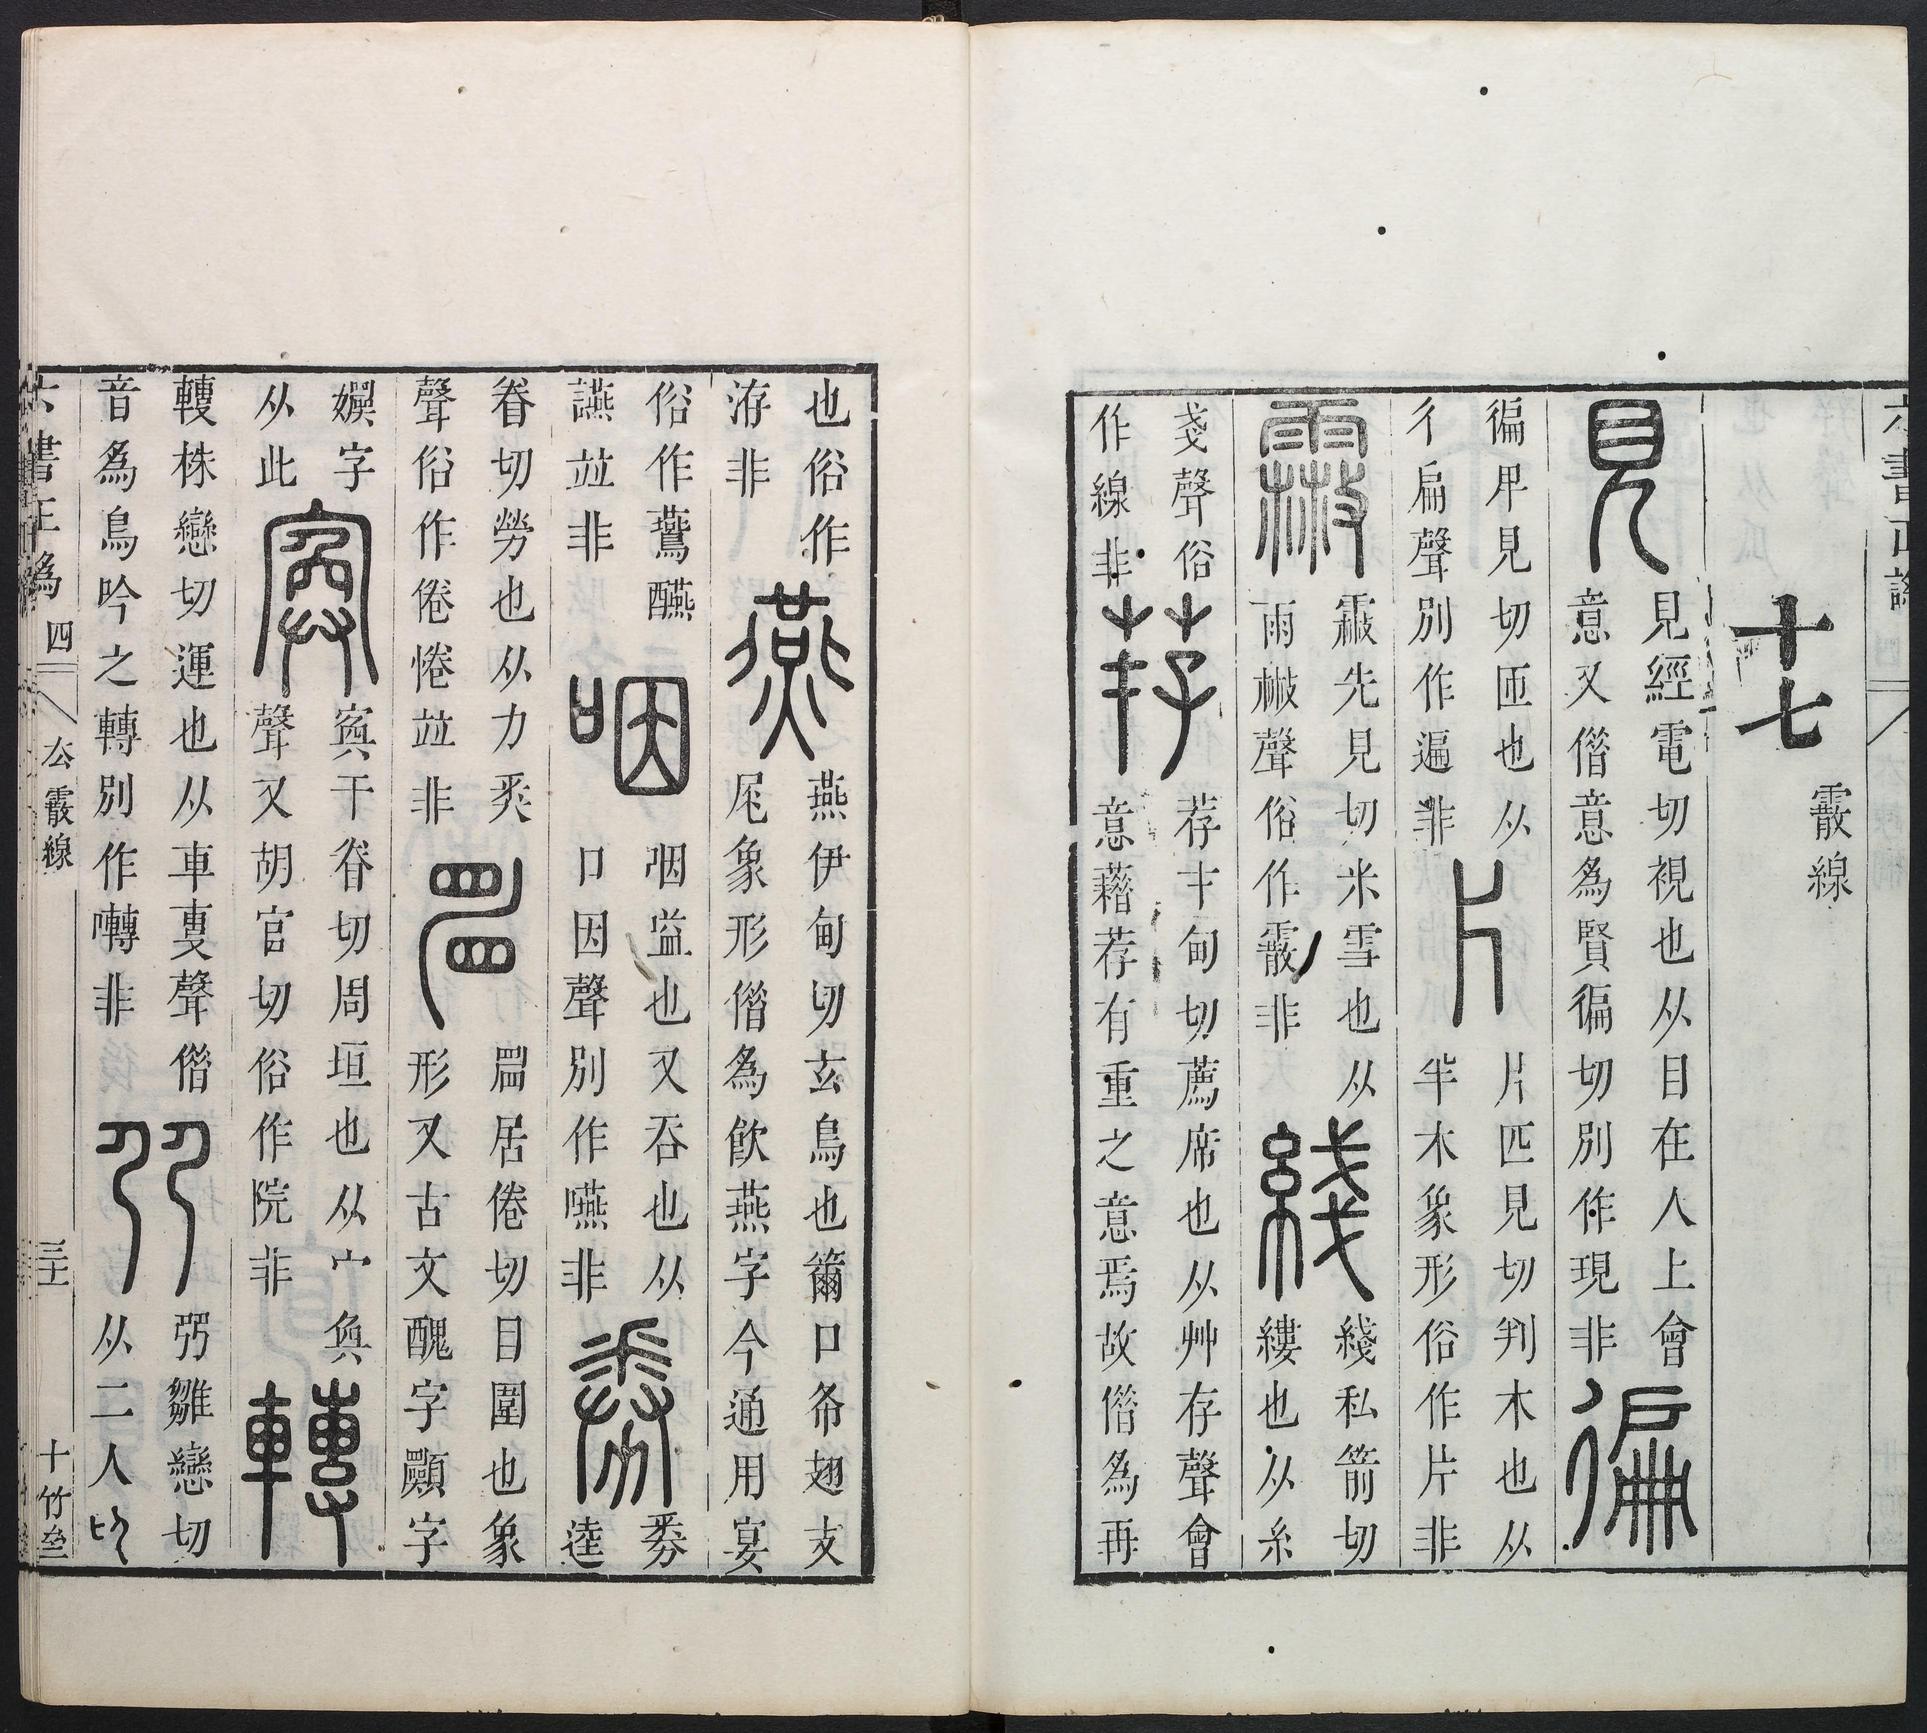 十七
霰線
見
見經電切視也从目在人上會
意又僭意為賢徧切別作現非
徧
徧甲見切帀也从
彳扁聲別作遍非
片
片匹見切判木也从
半木象形俗作片非
霰
先見切米雪也从
雨聲俗作霰非
綫
綫私箭切
縷也从糸
戔聲俗
作線非
荐
荐才甸切薦席也从艸存聲會
意藉荐有重之意焉故僭為再
也俗作
洊非
燕
燕伊甸切玄鳥也籋口布翅支
尾象形僭為飲燕字今通用宴
俗作鷰醼
讌並非
咽
咽益也又吞也从
口因聲別作嚥非
逵
眷切勞也从力
聲俗作倦惓並非
居倦切目圍也象
形又古文醜字顯字
嬽字
从此
寏
寏干眷切周垣也从宀奐
聲又胡官切俗作院非
轉
轉株戀切運也从車專聲僭
音為鳥吟之轉別作囀非
雛戀切
从二人
六書正譌 四 去霰線 三十一 十竹